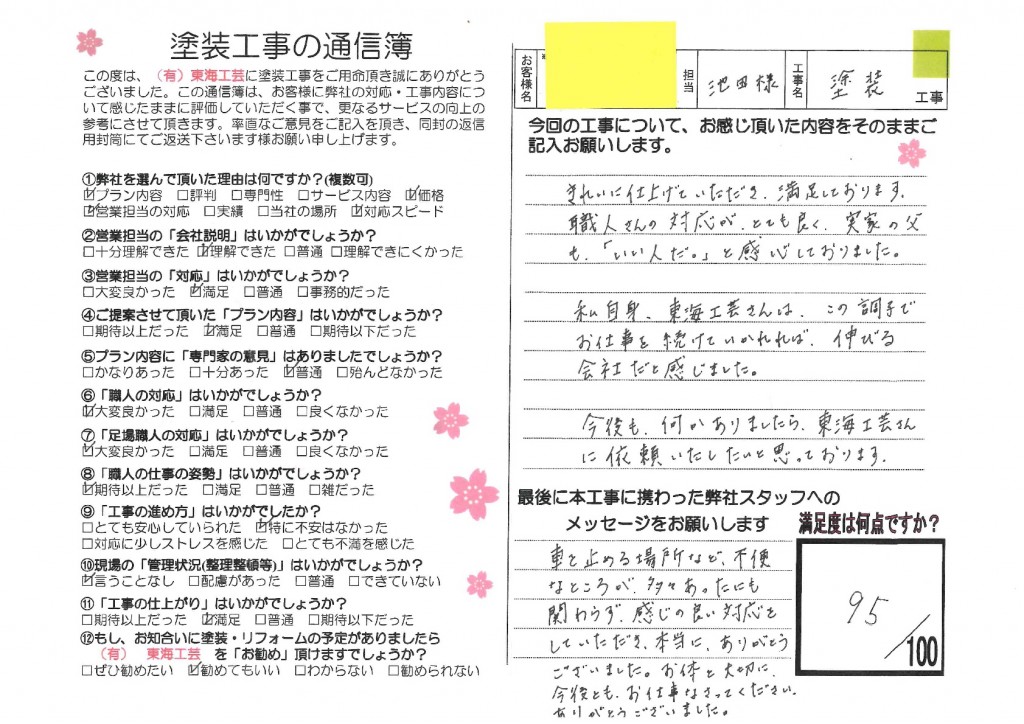 塗装工事の通信簿
この度は、(有)東海工芸に塗装工事をご用命頂き誠にありがとう
ございました。この通信簿は、お客様に弊社の対応・工事内容につ
いて感じたままに評価していただく事で、更なるサービスの向上の
参考にさせて頂きます。率直なご意見をご記入を頂き、同封の返信
用封筒にてご返送下さいます様お願い申し上げます。
①弊社を選んで頂いた理由は何ですか?(複数可)
☑プラン内容 □評判 □専門性 □サービス内容 ☑価格
☑営業担当の対応 □実績 □当社の場所 ☑対応スピード
②営業担当の「会社説明」はいかがでしょうか?
□十分理解できた ☑理解できた □普通 □理解できにくかった
③営業担当の「対応」はいかがでしょうか?
□大変良かった ☑満足 □普通 □事務的だった
④ご提案させて頂いた「プラン内容」はいかがでしょうか?
□期待以上だった ☑満足 □普通 □期待以下だった
⑤プラン内容に「専門家の意見」はありましたでしょうか?
□かなりあった □十分あった ☑普通 □殆んどなかった
⑥「職人の対応」はいかがでしょうか?
☑大変良かった □満足 □普通 □良くなかった
⑦「足場職人の対応」はいかがでしょうか?
☑大変良かった □満足 □普通 □良くなかった
⑧「職人の仕事の姿勢」はいかがでしょうか?
☑期待以上だった □満足 □普通 □雑だった
⑨「工事の進め方」はいかがでしたか?
□とても安心していられた ☑特に不安はなかった
□対応に少しストレスを感じた □とても不満を感じた
⑩現場の「管理状況(整理整頓等)」はいかがでしょうか?
☑言うことなし □配慮があった □普通 □できていない
⑪「工事の仕上がり」はいかがでしょうか?
□期待以上だった ☑満足 □普通 □期待以下だった
⑫もし、お知合いに塗装・リフォームの予定がありましたら
(有) 東海工芸 を「お勧め」頂けますでしょうか?
□ぜひ勧めたい ☑勧めてもいい □わからない □勧められない
お客様名 担当 池田様 工事名 塗装 工事
今回の工事について、お感じ頂いた内容をそのままご
記入お願いします。
きれいに仕上げていただき、満足しております。
職人さんの対応が、とても良く、実家の父
も、「いい人だ。」と感心しておりました。
私自身、東海工芸さんは、この調子で
お仕事を続けていかれれば、伸びる
会社だと感じました。
今後も、何かありましたら、東海工芸さん
に依頼いたしたいと思っております。
最後に本工事に携わった弊社スタッフへの
メッセージをお願いします
車を止める場所など、不便
なところが、多々あったにも
関わらず、感じの良い対応を
していただき、本当に、ありがとう
ございました。お体を大切に、
今後とも、お仕事なさってください。
ありがとうございました。
満足度は何点ですか?
95/100